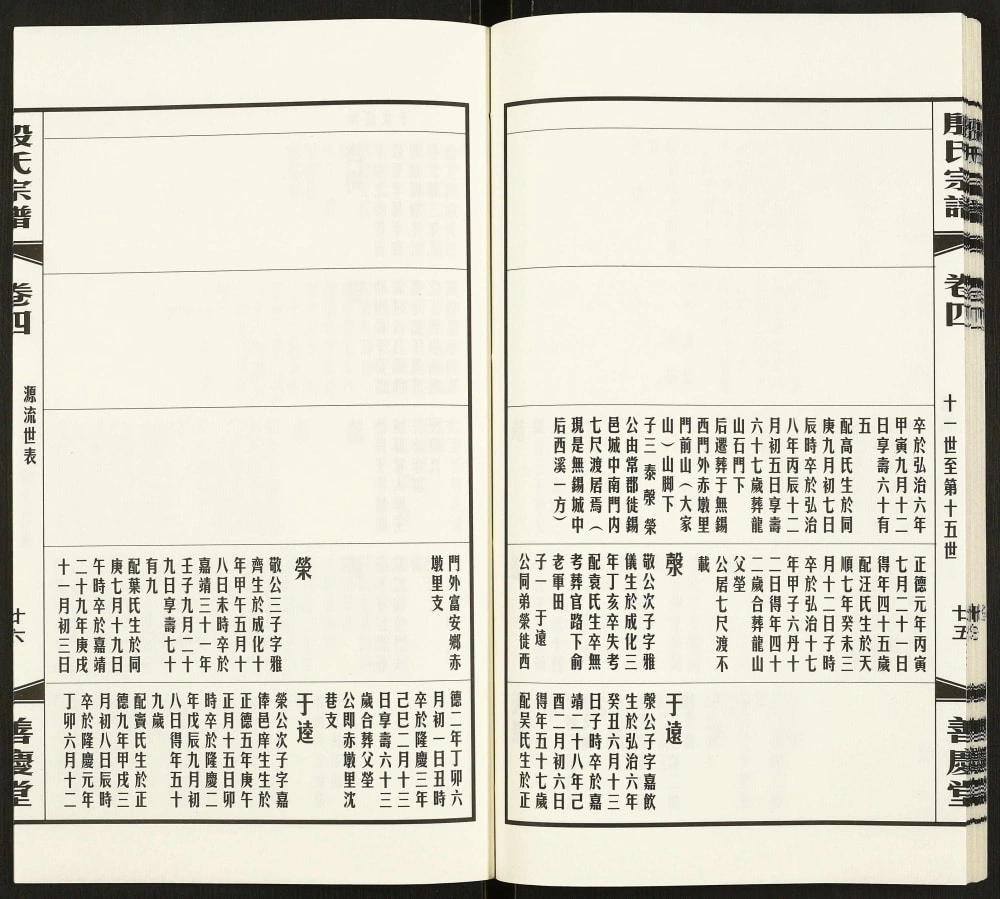 殷氏宗譜
卷四
十一世至第十五世
七五
善慶堂
卒於弘治六年
甲寅九月十二
日享壽六十有
五
配高氏生於同
庚九月初七日
辰時卒於弘治
八年丙辰十二
月初五日享壽
六十七歲葬龍
山石門下
后遷葬于無錫
西門外赤墩里
門前山（大家
山）山脚下
子三 泰 滎 榮
公由常郡徙錫
邑城中南門内
七尺渡居焉（
現是無錫城中
后西溪一方）
正德元年丙寅
七月二十一日
得年四十五歲
配汪氏生於天
順七年癸未三
月十二日子時
卒於弘治十七
年甲子六丹十
二日得年四十
二歲合葬龍山
父塋
公居七尺渡不
載
敬公次子字雅
儀生於成化三
年丁亥卒失考
配袁氏生卒無
考葬官路下俞
老軍田
子一 于遠
公同弟榮徙西
于遠
公子字嘉飲
生於弘治六年
癸丑六月十三
日子時卒於嘉
靖二十八年己
酉二月初六日
得年五十七歲
配吴氏生於正
殷氏宗譜
卷四
源流世表
廿六
善慶堂
門外富安鄉赤
墩里支
榮
敬公三子字雅
齊生於成化十
年甲午五月十
八日未時卒於
嘉靖三十一年
壬子九月二十
九日享壽七十
有九
配葉氏生於同
庚七月十九日
午時卒於嘉靖
二十九年庚戌
十一月初三日
德二年丁卯六
月初一日丑時
卒於隆慶三年
己巳二月十三
日享壽六十三
歲合葬父塋
公即赤墩里沈
巷支
于逵
榮公次子字嘉
俸邑庠生生於
正德五年庚午
正月十五日卯
時卒於隆慶二
年戊辰九月初
八日得年五十
九歲
配竇氏生於正
德九年甲戌三
月初八日辰時
卒於隆慶元年
丁卯六月十二